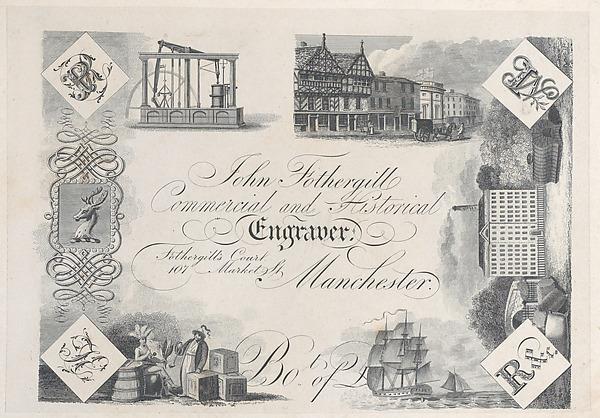 John Fothergill
Commercial and Historical
Engraver.
Fothergill's Court
107 Market St.
Manchester.
Bot. of